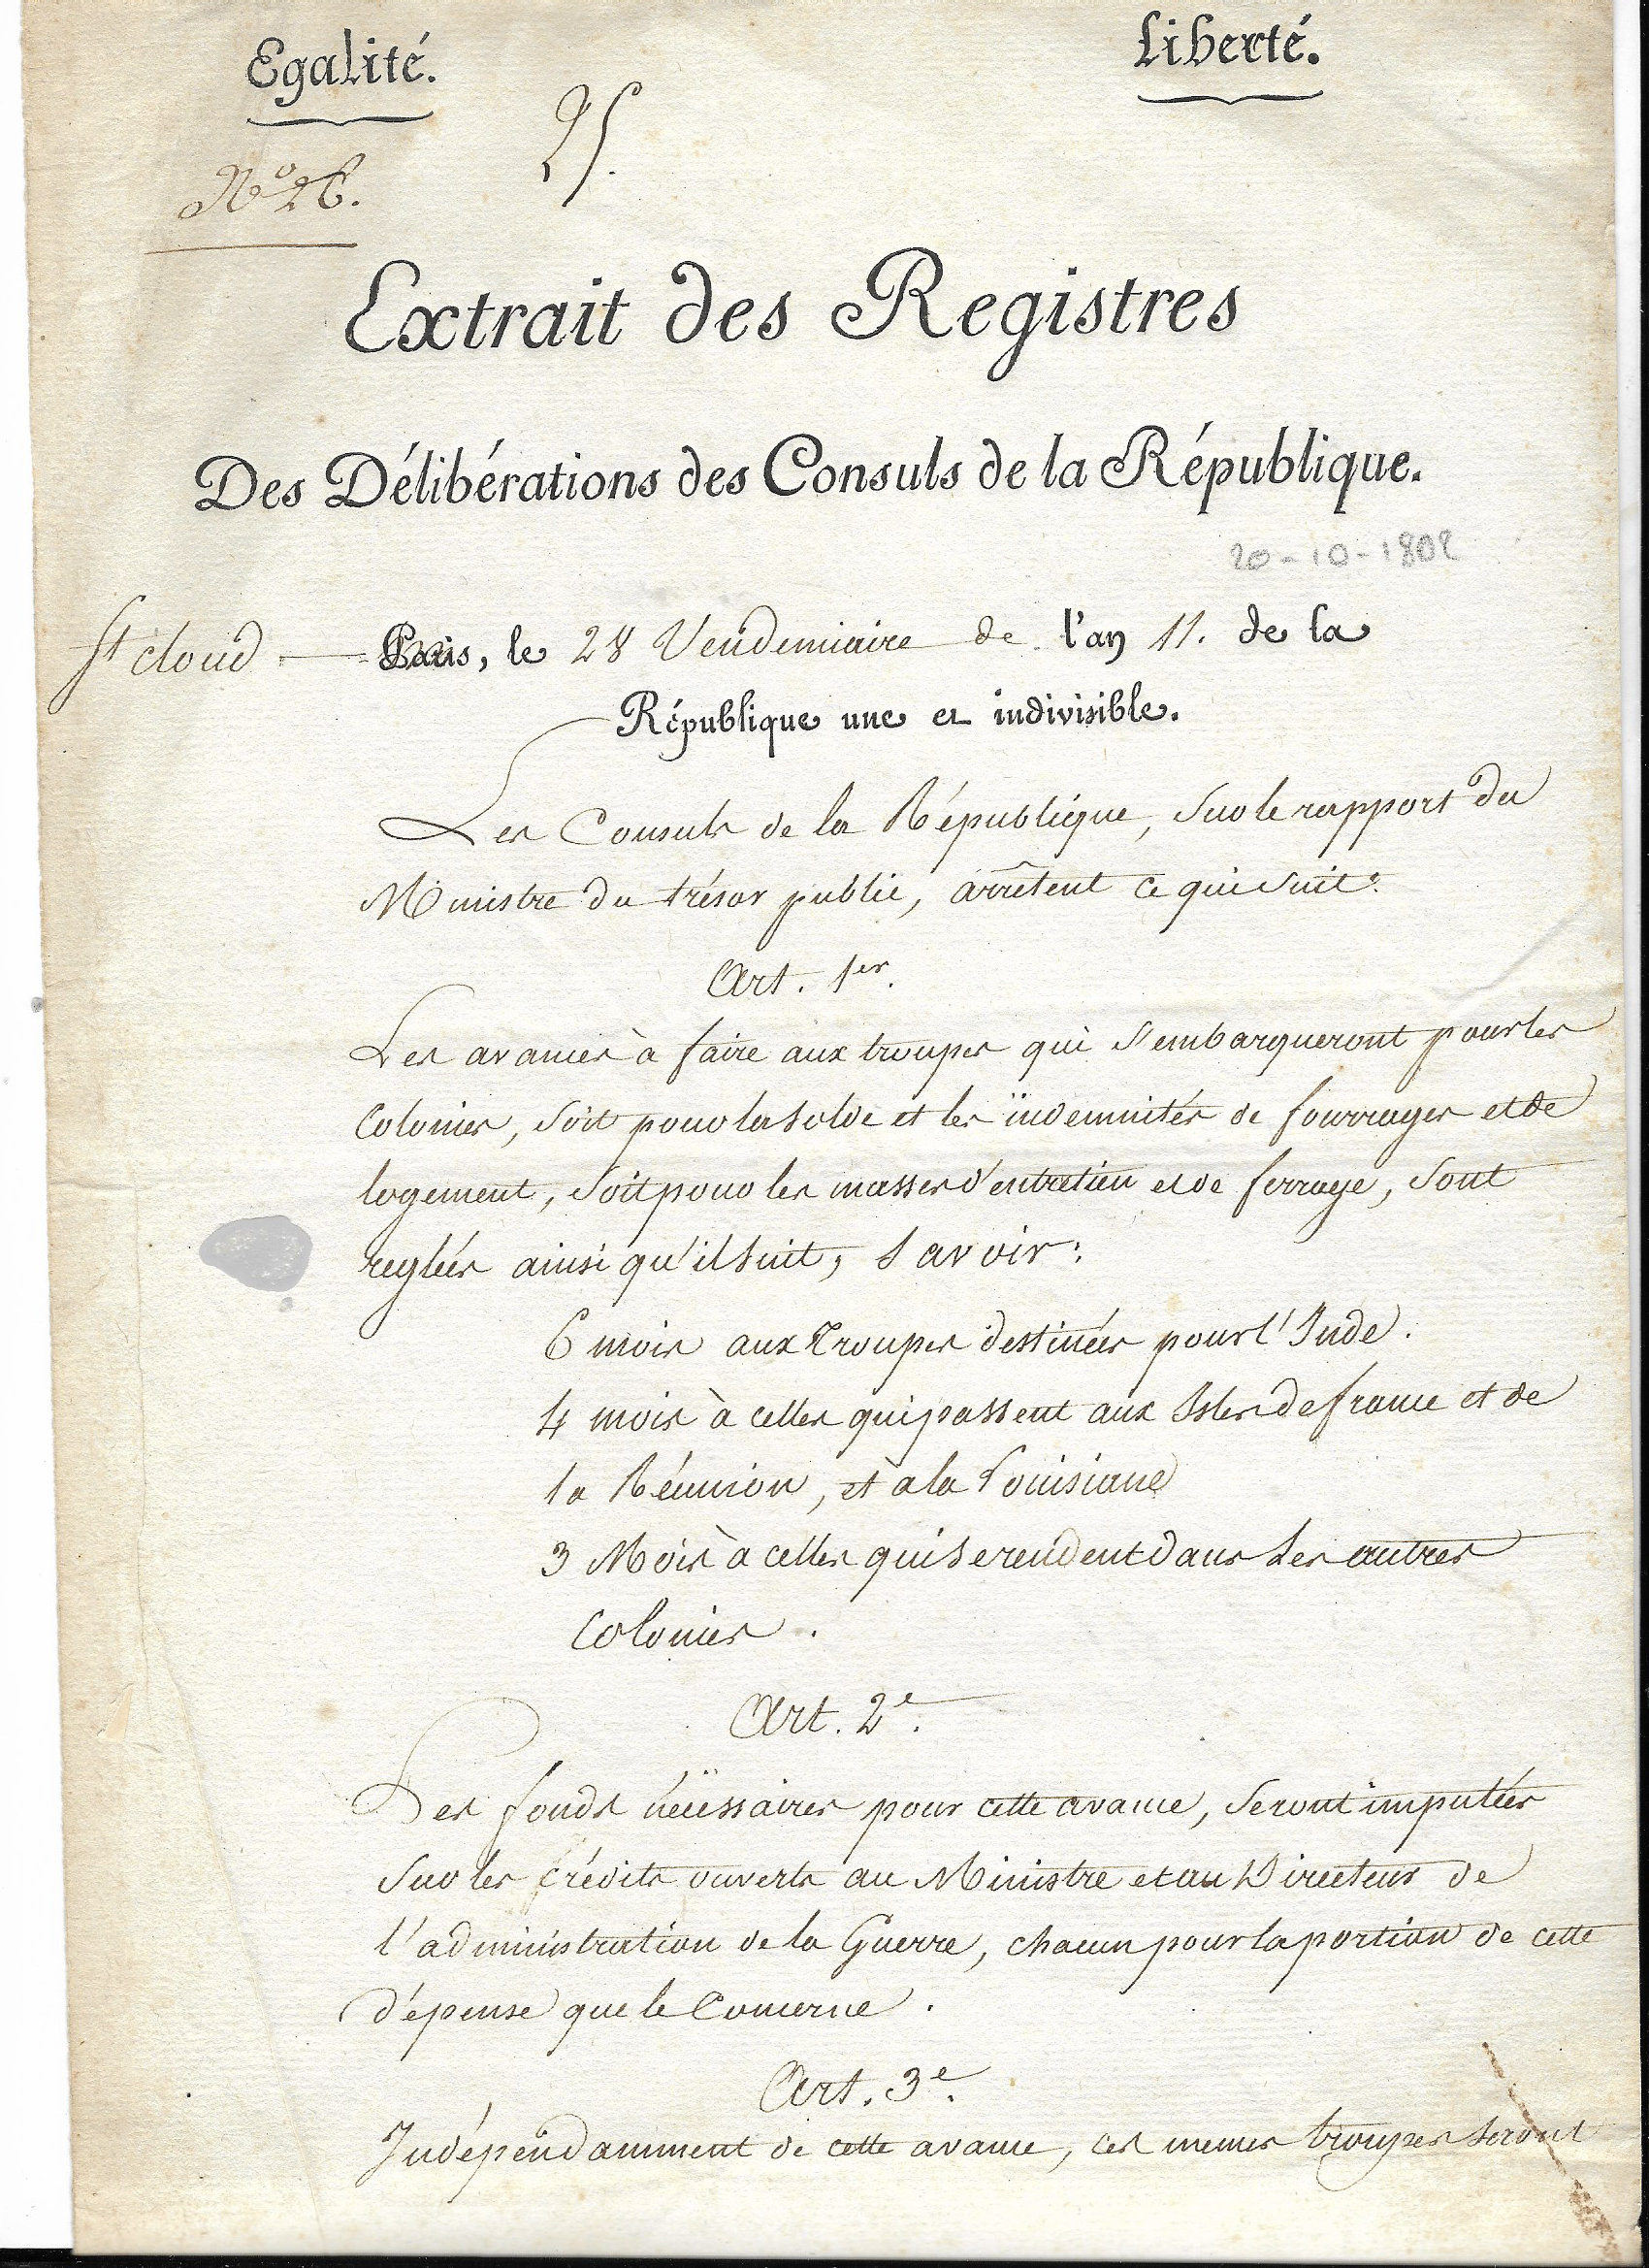 Egalité.
Liberté.
25.
Nº 26.
Extrait des Registres
Des Délibérations des Consuls de la République.
20-10-1802
St cloud — Paris, le 28 Vendemiaire de l'an 11. de la
République une et indivisible.
Les Consuls de la République, Sur le rapport du
Ministre du trésor public, arrêtent ce qui suit:
Art. 1er.
Les avances à faire aux troupes qui s'embarqueront pour les
Colonies, soit pour la Solde et les indemnités de fourrages et de
logement, soit pour les masses d'entretien et de ferrage, sont
reglées ainsi qu'il suit, savoir:
6 mois aux Troupes destinées pour l'Inde.
4 mois à celles qui passent aux Isles de france et de
la Réunion, et à la Louisiane
3 Mois à celles qui se rendent dans les autres
Colonies.
Art. 2e.
Les fonds nécessaires pour cette avance, seront imputées
sur les crédits ouverts au Ministre et au Directeur de
l'administration de la Guerre, chacun pour la portion de cette
dépense que le Concerne.
Art. 3e.
Indépendamment de cette avance, ces memes troupes seront